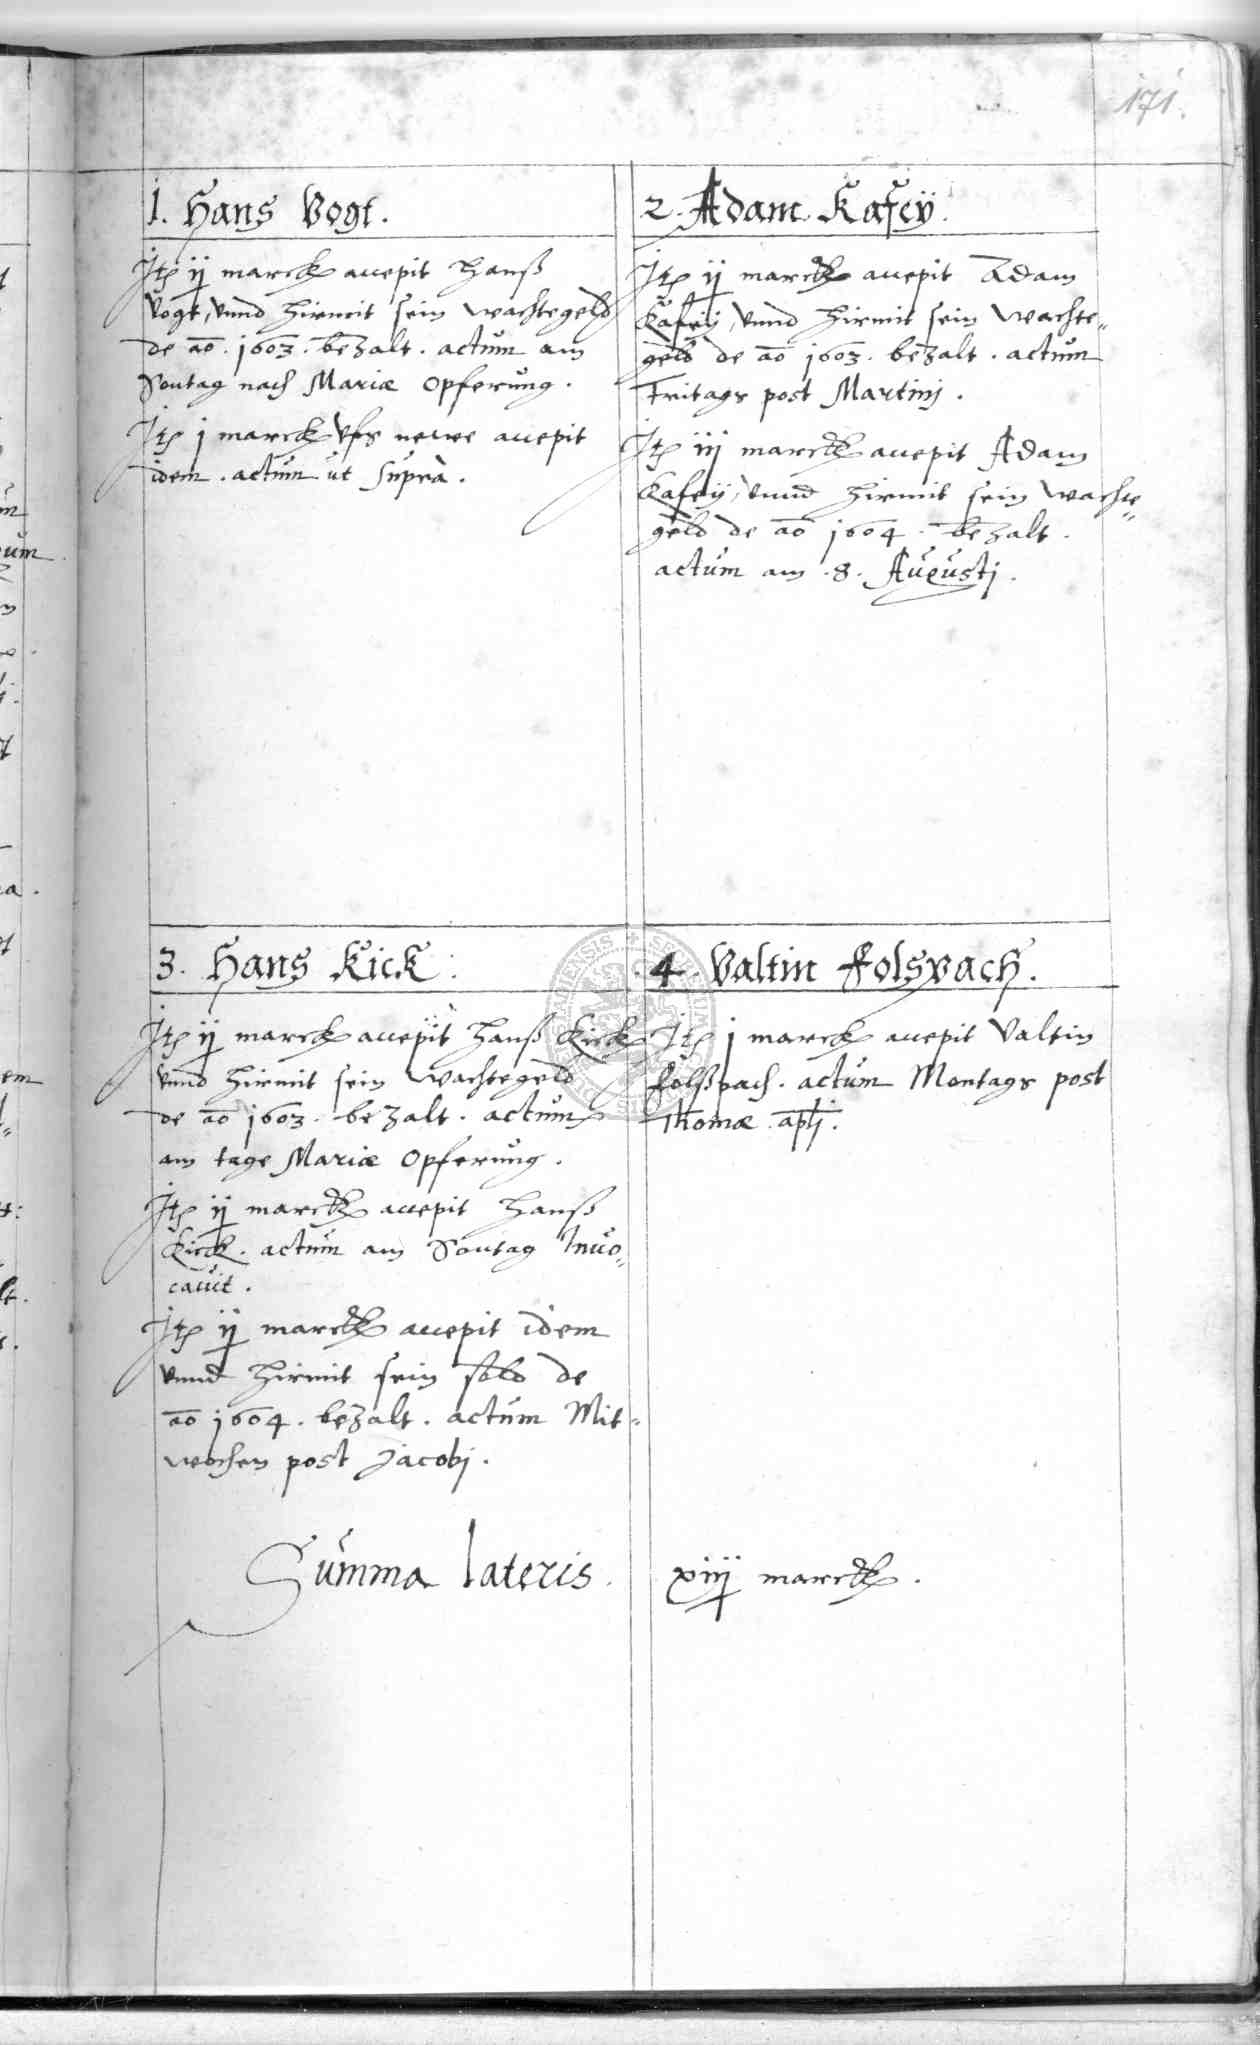 171.
1. Hans Vogt.
Itē ij marck accepit Hanß
Vogt, vnnd hiermit sein wachtegeld
de aō. 1603. bezalt. actum am
Sontag nach Mariæ Opferung.
Itē j marck vfs newe accepit
idem. actum ut suprà.
2. Adam Kafeÿ.
Itē ij marck accepit Adam
Kafeÿ, vnnd hirmit sein wachte„
geld de aō 1603. bezalt. actum
Fritags post Martinj.
Itē iij marck accepit Adam
Kafeÿ, vnnd hirmit sein wachte„
geld de aō 1604. bezalt.
actum am .8. Augustj.
3. Hans Kick.
Itē ij marck accepit Hanß Kick
vnnd hirmit sein wachtegeld
de aō 1603. bezalt. actum
am tage Mariæ Opferung.
Itē ij marck accepit Hanß
Kick. actum am Sontag Invo„
cauit.
Itē ij marck accepit idem
vnnd hirmit sein sold de
aō 1604. bezalt. actum Mit„
wochen post Jacobj.
4. Valtin Folspach.
Itē j marck accepit Valtin
Folßpach. actum Montags post
Thomæ aplj.
Summa lateris. xiiij marck.